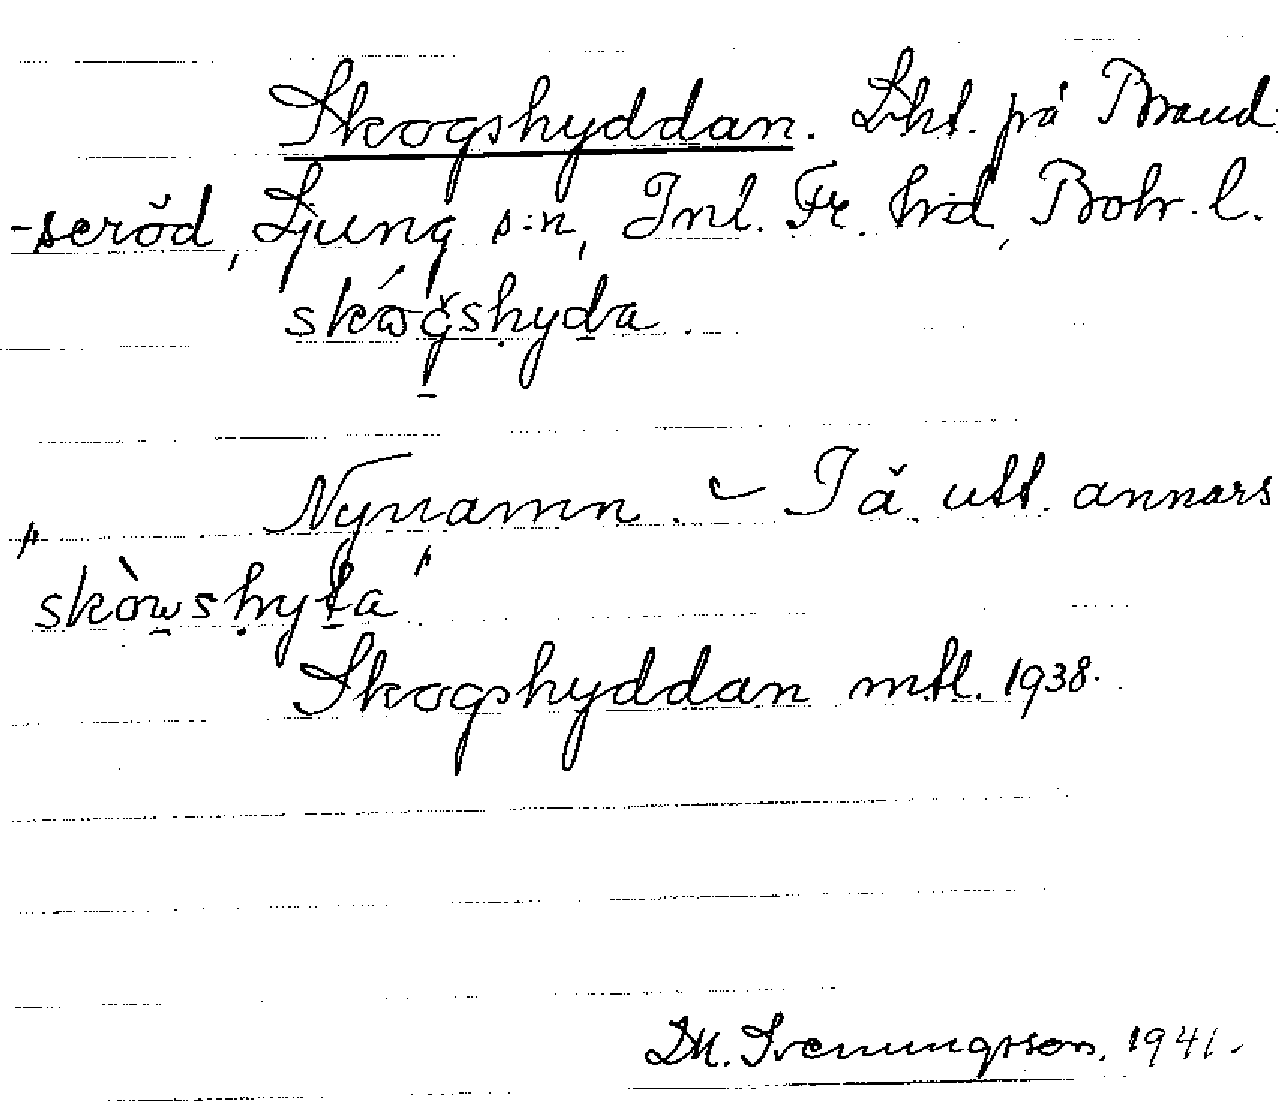 Skogshyddan. Lht. på Brand-
-seröd, Ljung s:n, Inl. Fr. hrd, Bohr. l.
skógshyda
Nynamn. – Iä. utt. annars
"skòwshyta"
Skogshyddan mtl. 1938.
DM. Svenungsson. 1941.